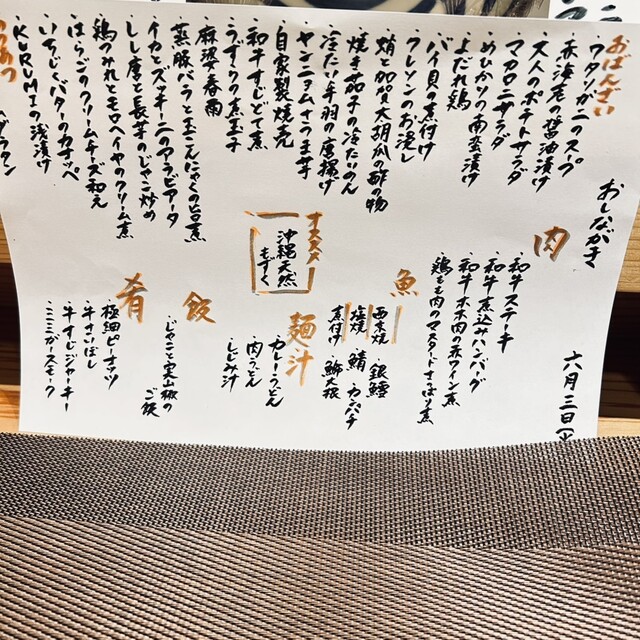 おしながき
六月三日
おばんざい
・ワタリガニのスープ
・赤海老の醤油漬け
・大人のポテトサラダ
・マカロニサラダ
・めひかりの南蛮漬け
・よだれ鶏
・バイ貝の煮付け
・クレソンのお浸し
・蛸と加賀太胡瓜の酢の物
・焼き茄子の冷たいのん
・冷たい手羽の唐揚げ
・ヤンニョムさつま芋
・自家製焼売
・和牛すじどて煮
・うずらの煮玉子
・麻婆春雨
・蒸豚バラと玉こんにゃくの旨煮
・イカとズッキーニのアラビアータ
・しし唐と長芋のじゃこ炒め
・鶏つみれとモロヘイヤのクリーム煮
・はらこのクリームチーズ和え
・いちじくバターのカナッペ
・KURUMIの浅漬け
肉
・和牛ステーキ
・和牛煮込みハンバーグ
・和牛ホホ肉の赤ワイン煮
・鶏もも肉のマスタードさっぱり煮
魚
西京焼 ・銀鱈
塩焼 ・鯖 ・カンパチ
煮付け ・鰤大根
オススメ
沖縄天然
もずく
麺汁
・カレーうどん
・肉うどん
・しじみ汁
飯
・じゃこと実山椒の
ご飯
肴
・極細ピーナッツ
・牛さいぼし
・牛すじジャーキー
・ミミガースモーク